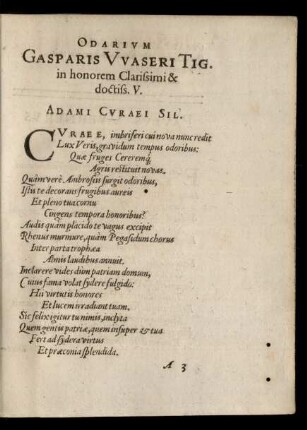 ODARIVM
GASPARIS VVASERI TIG.
in honorem Clarissimi &
doctiss. V.
ADAMI CVRAEI SIL.
CVRAEE, imbriferi cui nova nunc redit
Lux Veris, gravidum tempus odoribus:
Quæ fruges Cereremq́
Agris restituit novas.
Quàm verè Ambrosiis surgit odoribus,
Istis te decorans frugibus aureis
Et pleno tua cornu
Cingens tempora honoribus?
Audis quàm placido te vagus excipit
Rhenus murmure, quàm Pegasidum chorus
Inter parta trophæa
Almis laudibus annuit.
Inclarere vides dium patriam domum,
Cuius fama volat sydere fulgido:
Hìc virtutis honores
Et lucem irradiant tuam.
Sic felix egitur tu nimis, inclyta
Quem gentis patriæ, quem insuper & tua
Fert ad sydera virtus
Et præconia splendida.
A 3